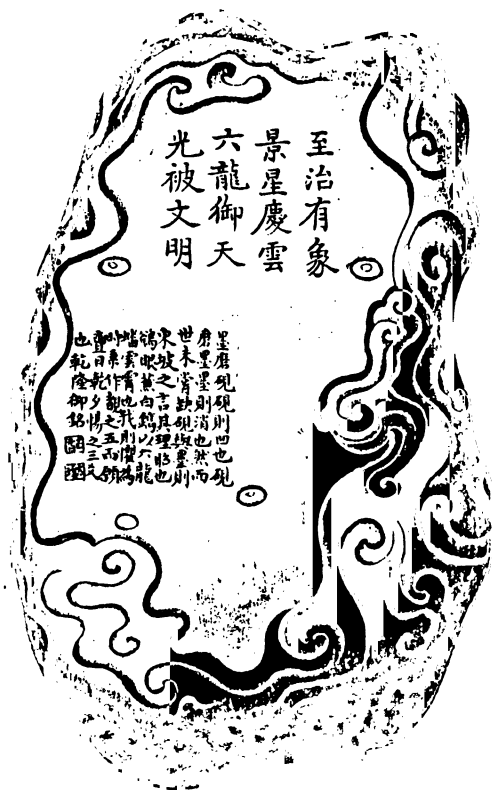 至治有象
景星慶雲
六龍御天
光被文明
墨磨硯硯則凹也硯
磨墨墨則消也然而
世未嘗缺硯與墨則
東坡之言具理昭也
鴝眼蕉白餙以六龍
雲 也我則 為
作 之五而
日乾夕惕之三爻
也乾隆御銘